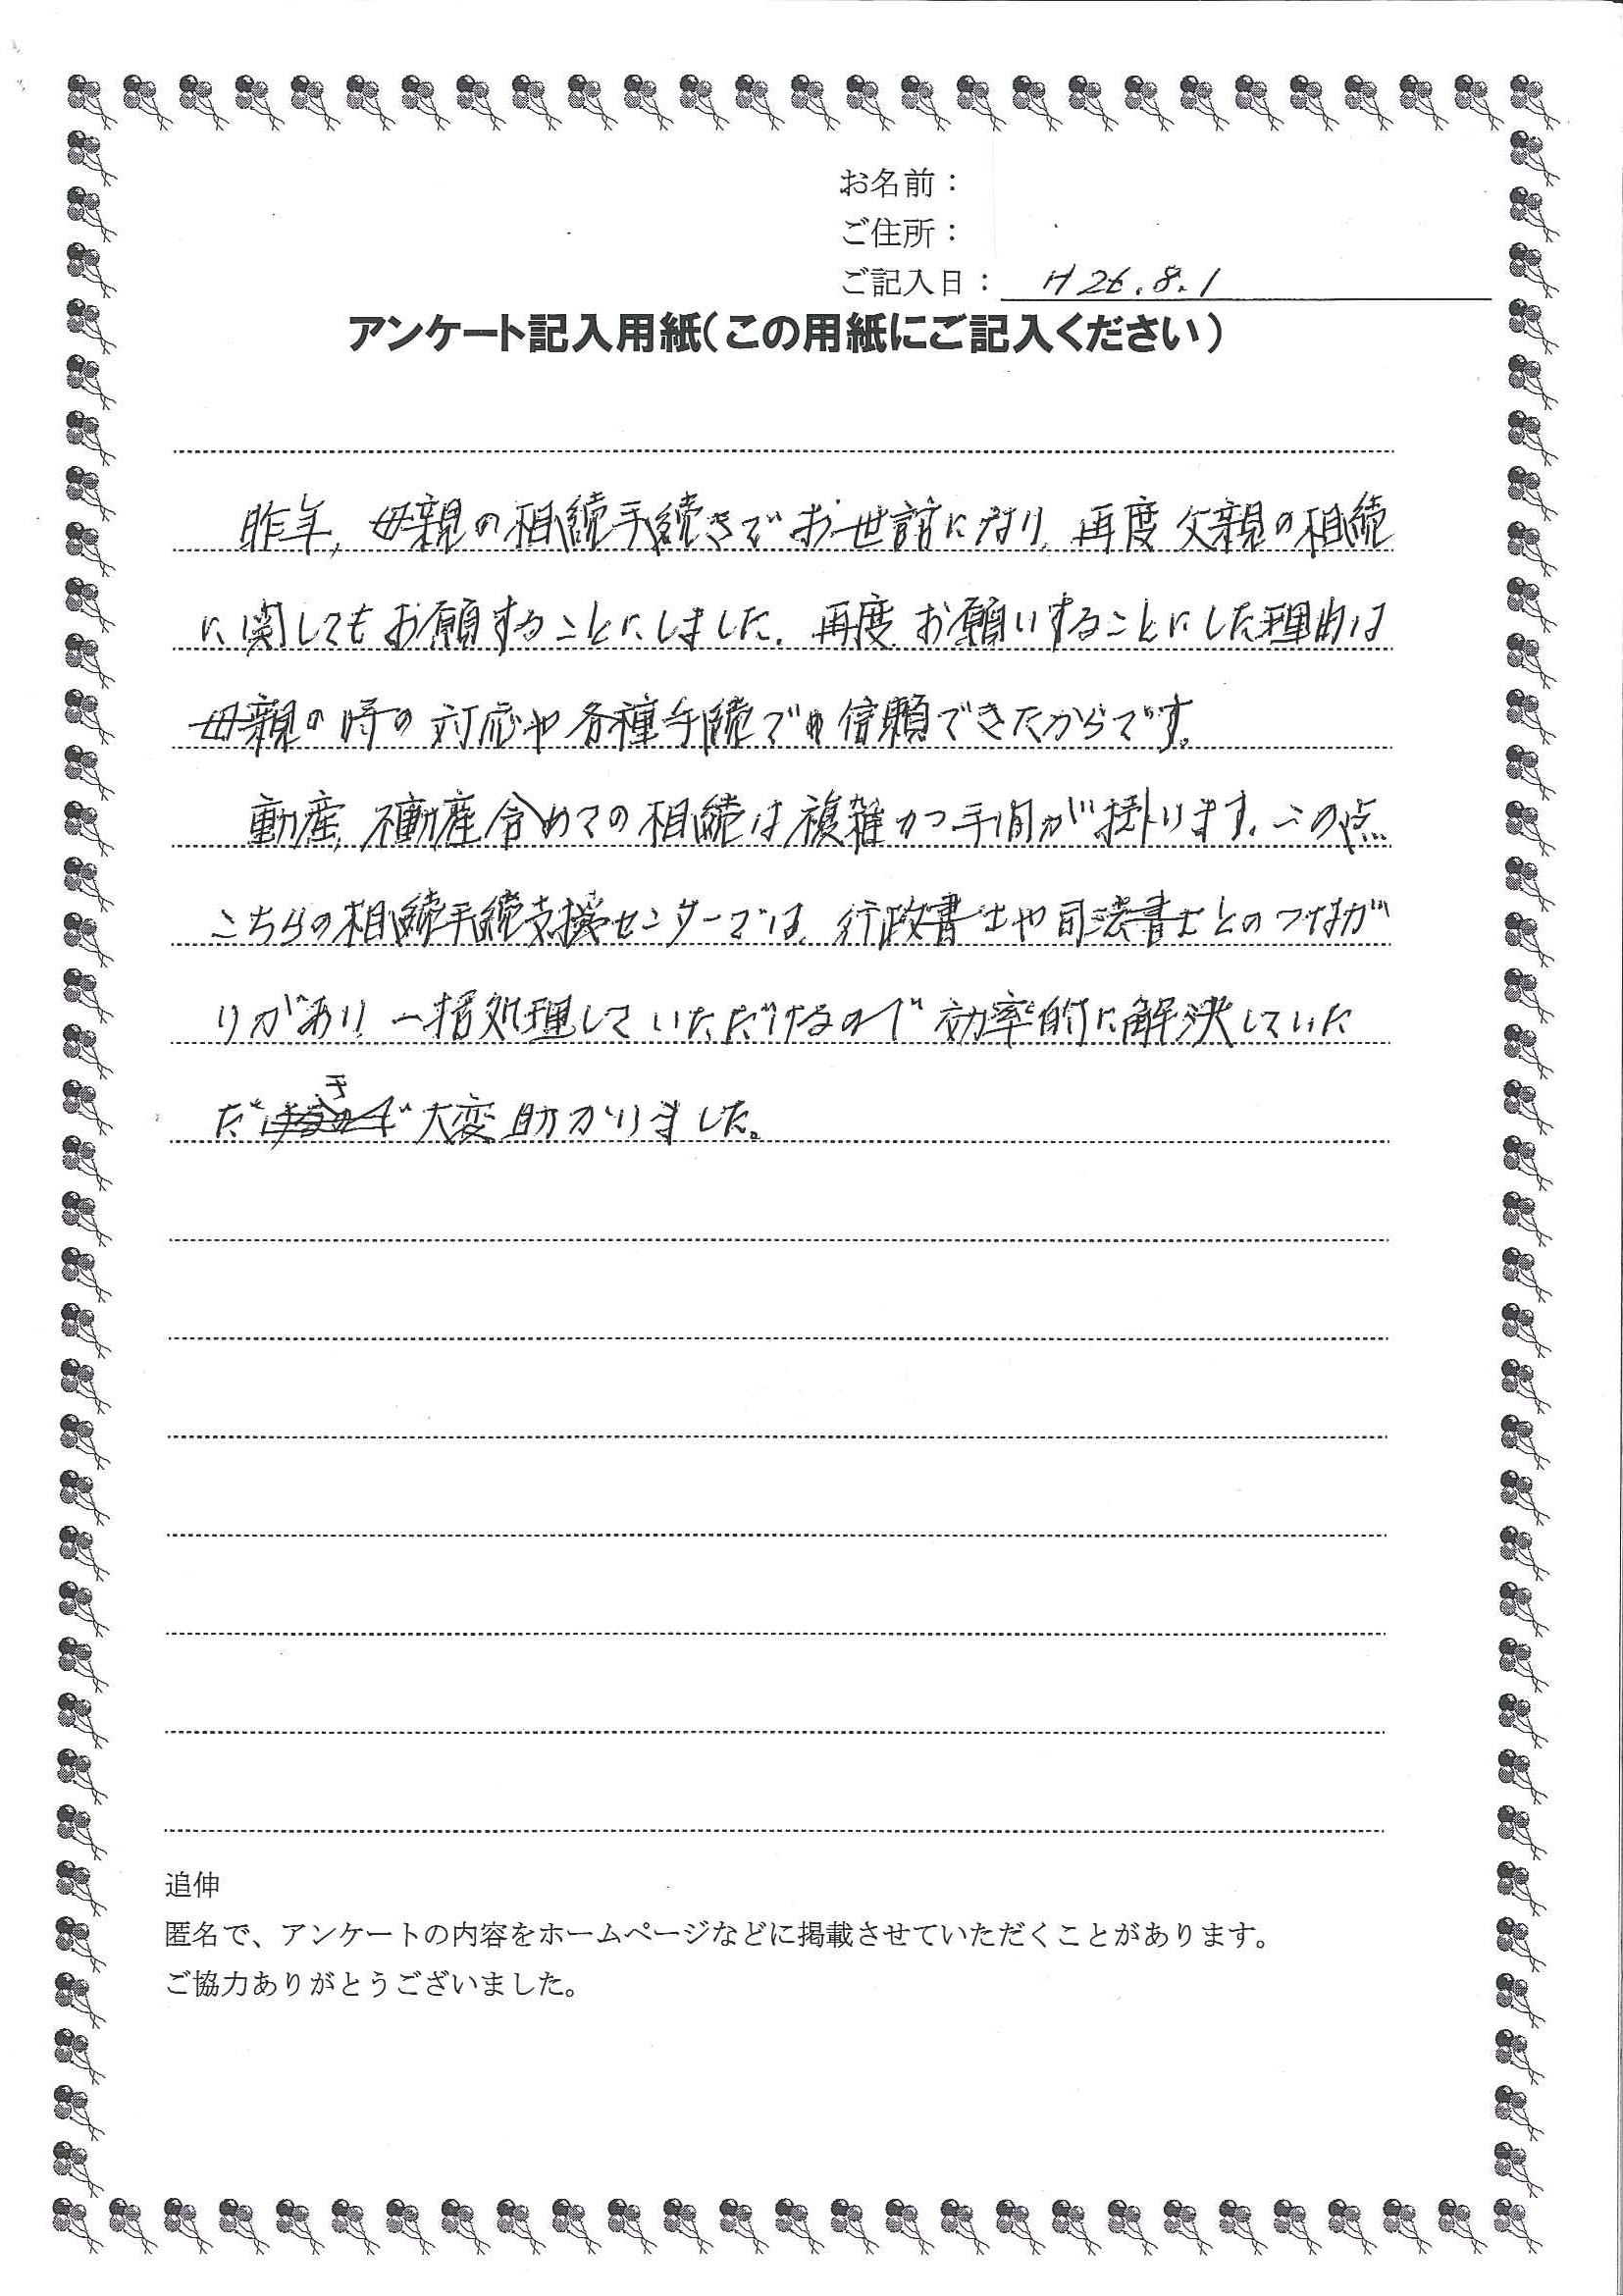 お名前：
ご住所：
ご記入日：H26.8.1
アンケート記入用紙（この用紙にご記入ください）
昨年、母親の相続手続きでお世話になり、再度父親の相続
に関してもお願することにしました。再度お願いすることにした理由は
母親の時の対応や各種手続での信頼できたからです。
動産、不動産含めての相続は複雑かつ手間が掛ります。この点
こちらの相続手続支援センターでは、行政書士や司法書士とのつなが
りがあり、一括処理していただけるので効率的に解決していた
だき大変助かりました。
追伸
匿名で、アンケートの内容をホームページなどに掲載させていただくことがあります。
ご協力ありがとうございました。